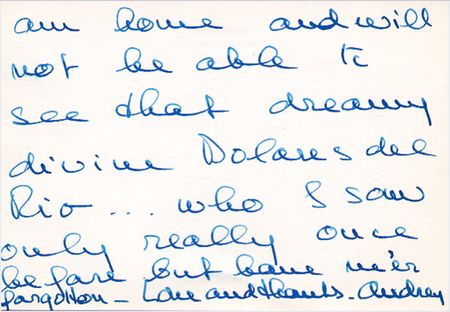 am home and will
not be able to
see that dreamy
divine Dolares del
Rio... who I saw
only really once
before but have ne'er
forgotten - Love and thanks - Audrey